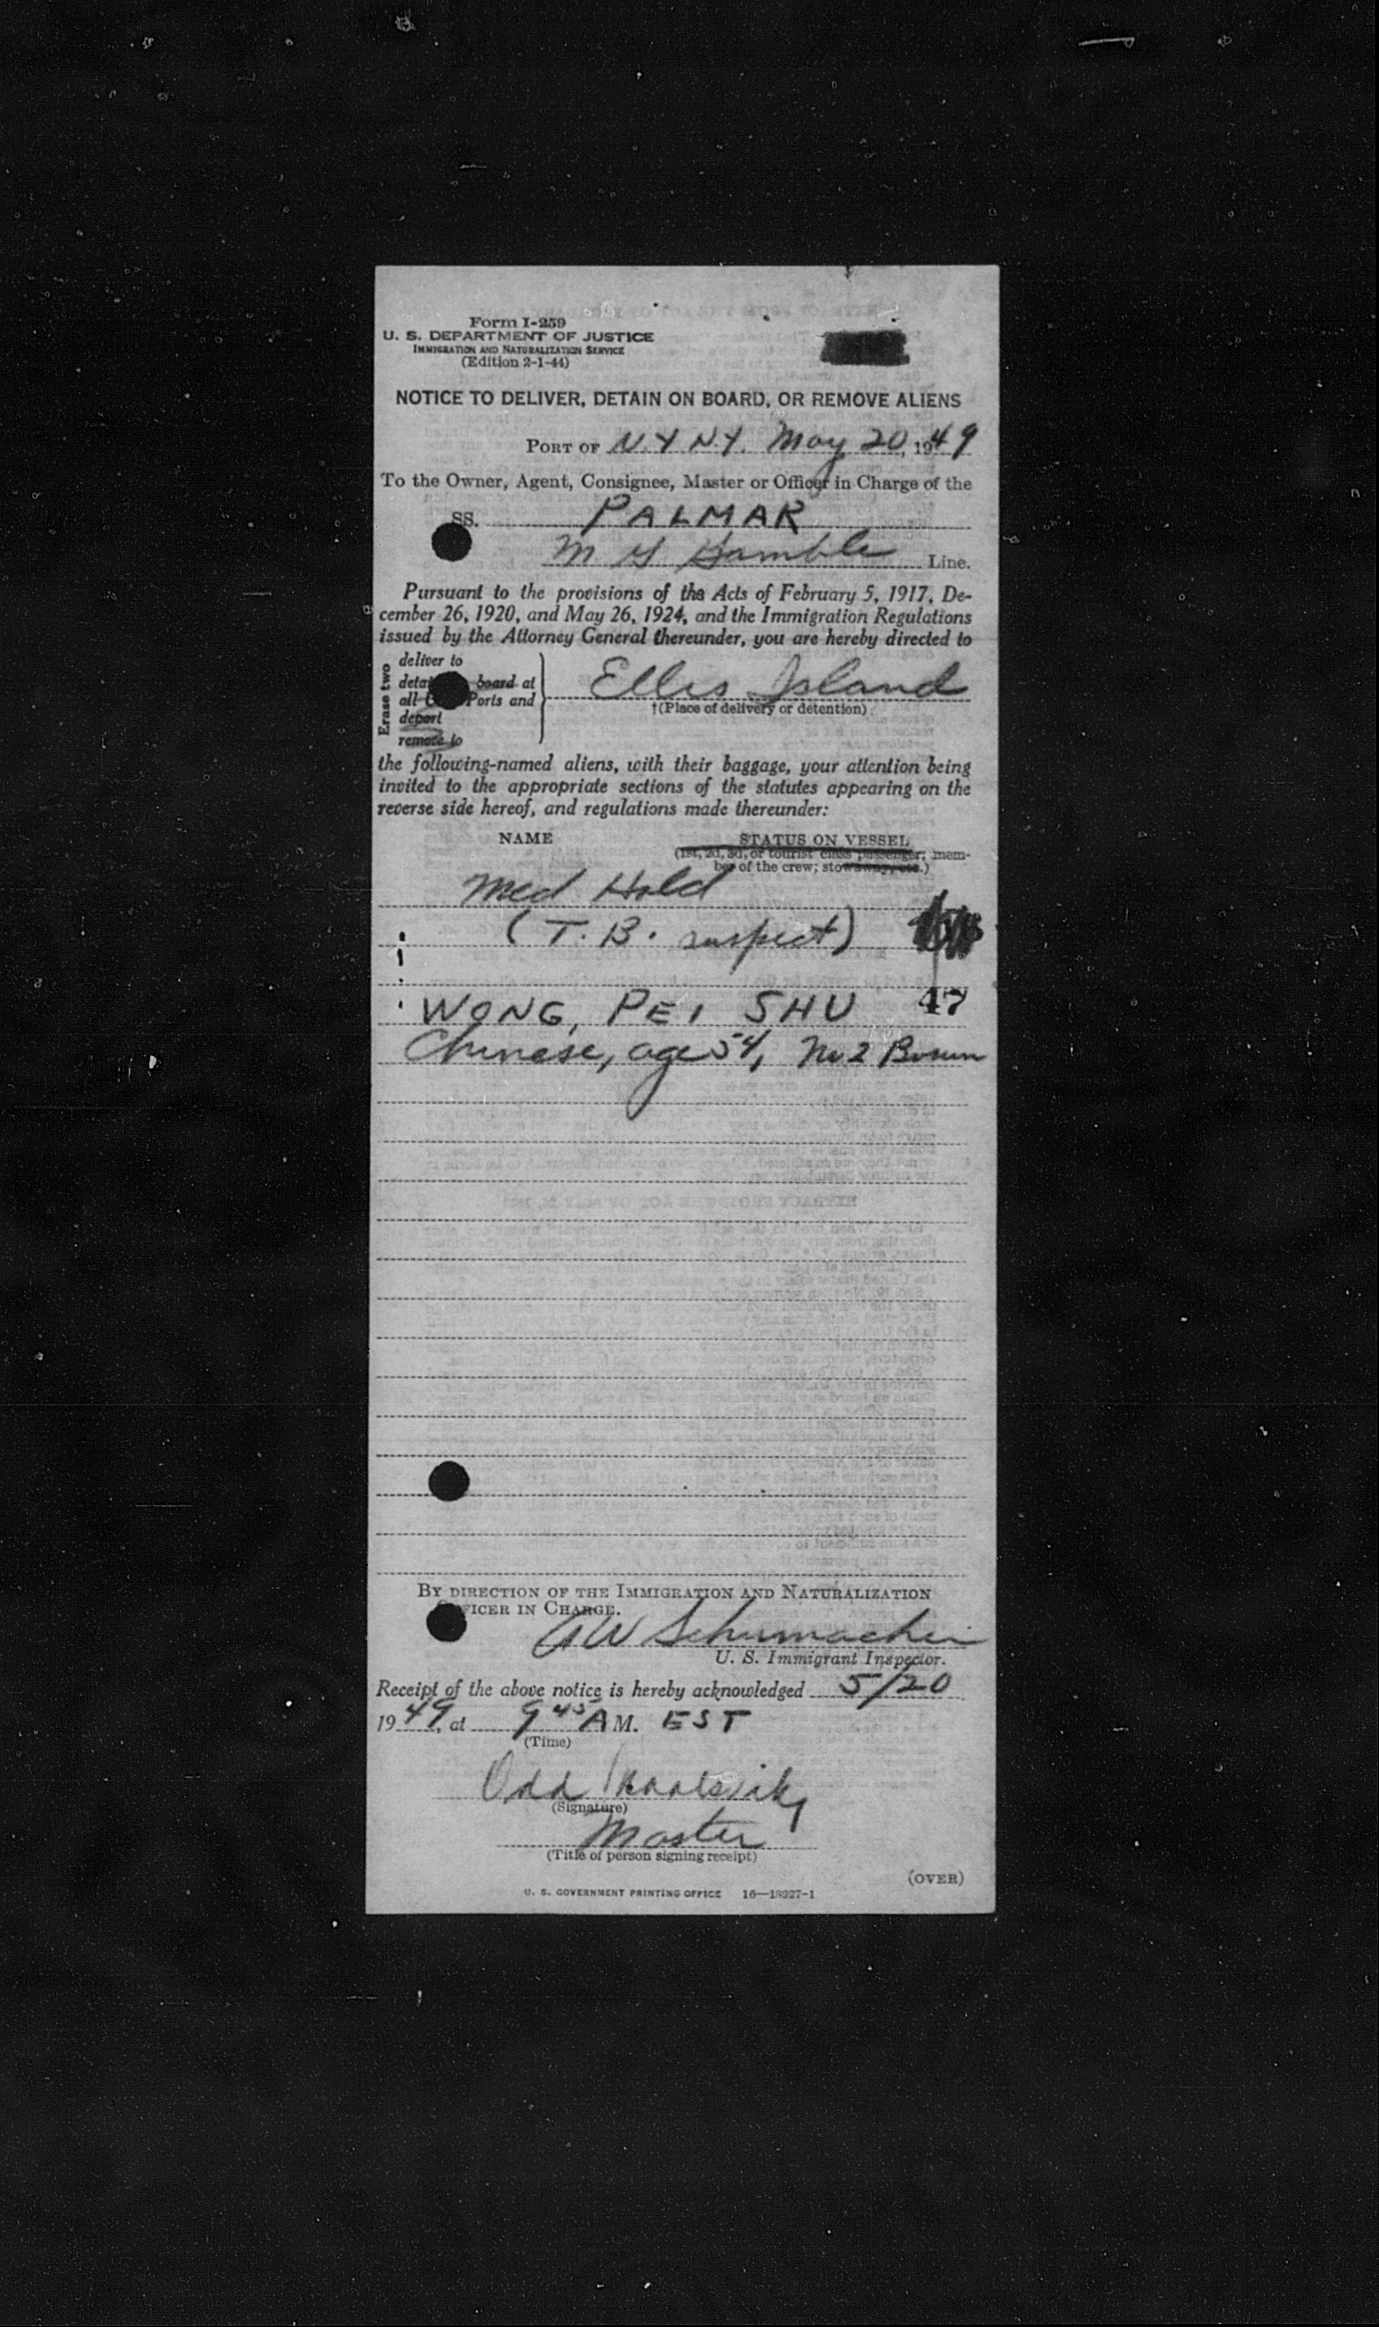 Form I-259
U. S. DEPARTMENT OF JUSTICE
IMMIGRATION AND NATURALIZATION SERVICE
(Edition 2-1-44)
NOTICE TO DELIVER, DETAIN ON BOARD, OR REMOVE ALIENS
PORT OF N.Y. N.Y. May 20, 1949
To the Owner, Agent, Consignee, Master or Officer in Charge of the
SS. PALMAR
Line.
Pursuant to the provisions of the Acts of February 5, 1917, De-
cember 26, 1920, and May 26, 1924, and the Immigration Regulations
issued by the Attorney General thereunder, you are hereby directed to
Erase two
deliver to
board at
all Ports and
deport
remove to
Ellis Island
†(Place of delivery or detention)
the following-named aliens, with their baggage, your attention being
invited to the appropriate sections of the statutes appearing on the
reverse side hereof, and regulations made thereunder:
NAME STATUS ON VESSEL
(1st, 2d, 3d, or tourist class passenger; mem-
ber of the crew; stowaway, etc.)
Med Hold
(T. B. suspect)
WONG, PEI SHU 47
Chinese, age 54, No 2 Bosun
BY DIRECTION OF THE IMMIGRATION AND NATURALIZATION
OFFICER IN CHARGE.
Schumacher
U. S. Immigrant Inspector.
Receipt of the above notice is hereby acknowledged 5/20
1949, at 9 45 A M. EST
(Time)
Odd
(Signature)
Master
(Title of person signing receipt)
(OVER)
U. S. GOVERNMENT PRINTING OFFICE 16—18927-1